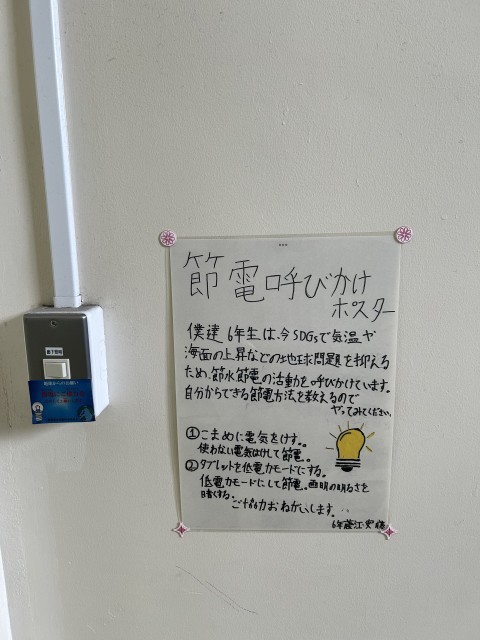 節電呼びかけ
ポスター
僕達6年生は、今SDGsで気温や
海面の上昇などの地球問題を抑える
ため、節水節電の活動を呼びかけています。
自分からできる節電方法を教えるので
やってみてください。
①こまめに電気をけす。
使わない電気はけして節電。
②タブレットを低電力モードにする。
低電力モードにして節電。画明の明るさを
暗くする。
ご協力おねがいします。
6年
廊下照明
地球からのお願い